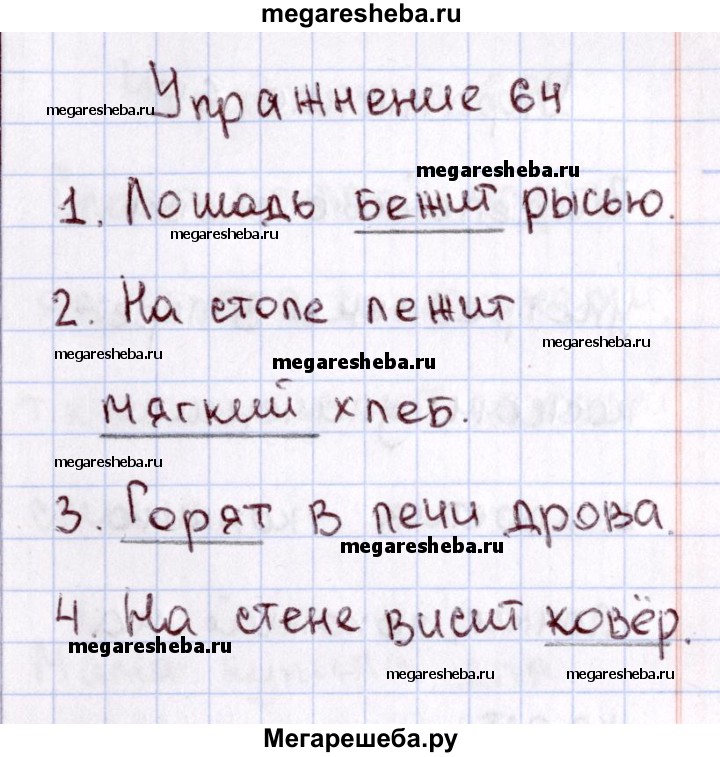 megaresheba.ru
Упражнение 64
megaresheba.ru
megaresheba.ru
1. Лошадь бежит рысью.
megaresheba.ru
2. На столе лежит
megaresheba.ru
megaresheba.ru
megaresheba.ru
мягкий хлеб.
megaresheba.ru
3. Горят в печи дрова.
megaresheba.ru
4. На стене висит ковёр.
megaresheba.ru
megaresheba.ru
Мегарешеба.ру